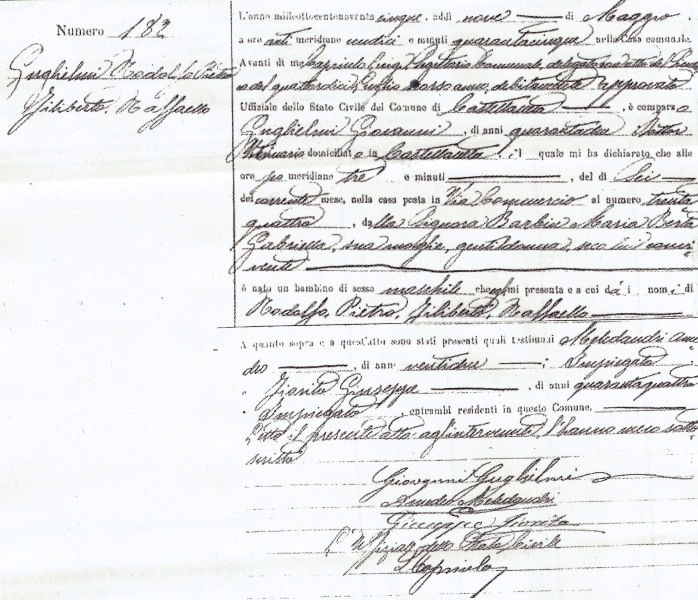 Numero 182
Guglielmi Rodolfo Pietro
Filiberto Raffaello
L'anno milleottocentonovanta cinque, addì nove di Maggio
a ore anti meridiane undici e minuti quarantacinque, nella Casa comunale.
Avanti di me Segretario Comunale, delegato
del quattordici Luglio scorso anno, debitamente approvato
Uffiziale dello Stato Civile del Comune di Castellaneta, è comparso
Guglielmi Giovanni, di anni quarantadue Dottor
Veterinario domiciliato in Castellaneta, il quale mi ha dichiarato che alle
ore po meridiane tre e minuti, del dì sei
del corrente mese, nella casa posta in Via Commercio al numero trenta
quattro, dalla Signora Barbin Maria Berta
Gabriella, sua moglie, gentildonna, seco lui convi
vente
è nato un bambino di sesso maschile che egli mi presenta e a cui dà i nomi di
Rodolfo, Pietro, Filiberto, Raffaello
A quanto sopra e a quest'atto sono stati presenti quali testimoni Meledandri Ame
deo, di anni ventidue, Impiegato
Giuseppe, di anni quarantaquattro
Impiegato, entrambi residenti in questo Comune.
Letto il presente atto agl'intervenuti, l'hanno meco sotto
scritto
Giovanni Guglielmi
Amedeo Meledandri
Giuseppe
L'Uffiziale dello Stato Civile